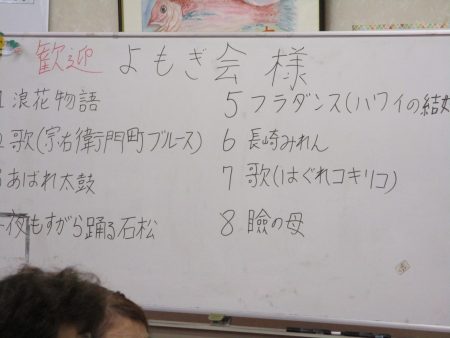 歓迎 よもぎ会 様
1 浪花物語
2 歌(宗右衛門町ブルース)
3 あばれ太鼓
夜もすがら踊る石松
5 フラダンス(ハワイの結婚
6 長崎みれん
7 歌(はぐれコキリコ)
8 瞼の母